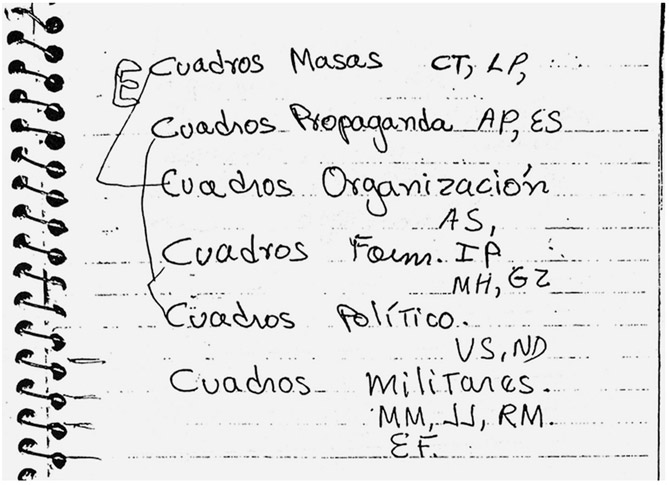 E Cuadros Masas CT, LP,
Cuadros Propaganda AP, ES
Cuadros Organización
AS,
Cuadros Form. IP
MH, GZ
Cuadros Político.
VS, ND
Cuadros militares.
MM, JJ, RM.
EF.